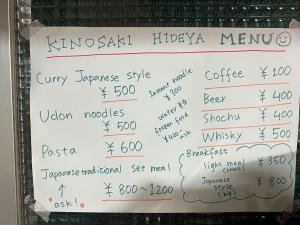 KINOSAKI HIDEYA MENU
Curry Japanese style
¥ 500
Udon noodles
¥ 500
Pasta ¥ 600
Japanese traditional set meal
¥ 800~1200
"ask!"
noodle
¥300
water
frozen food
¥400 ask
Coffee ¥ 100
Beer ¥ 400
Shochu ¥ 400
Whisky ¥ 500
Breakfast
light meal ¥ 350
(small)
Japanese ¥ 800
style
(big)